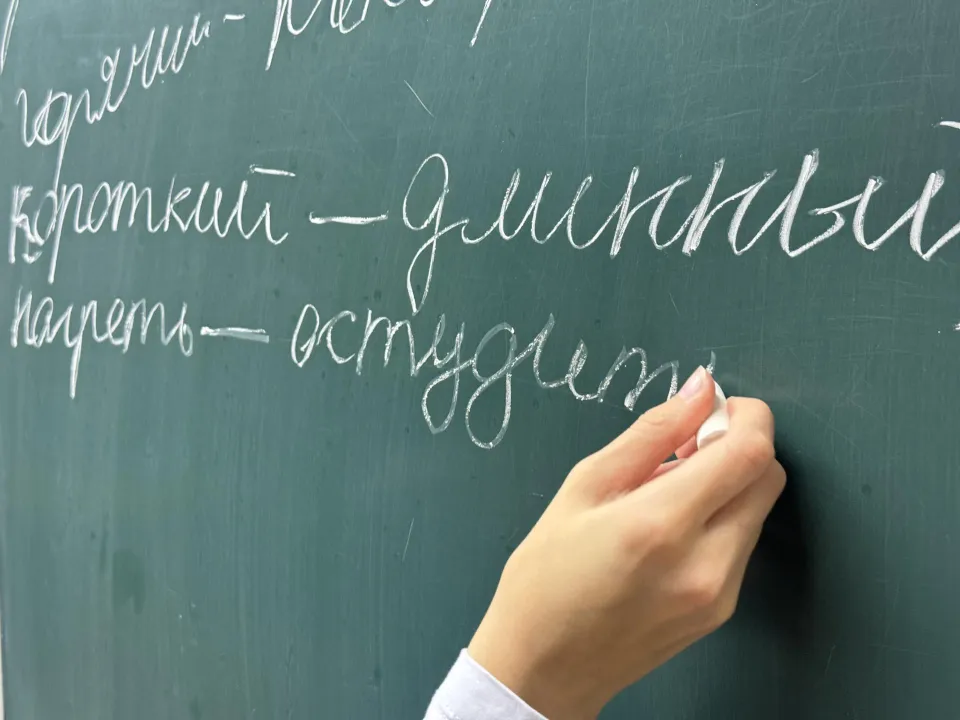 горячий -
короткий — длинный
нагреть — остудить